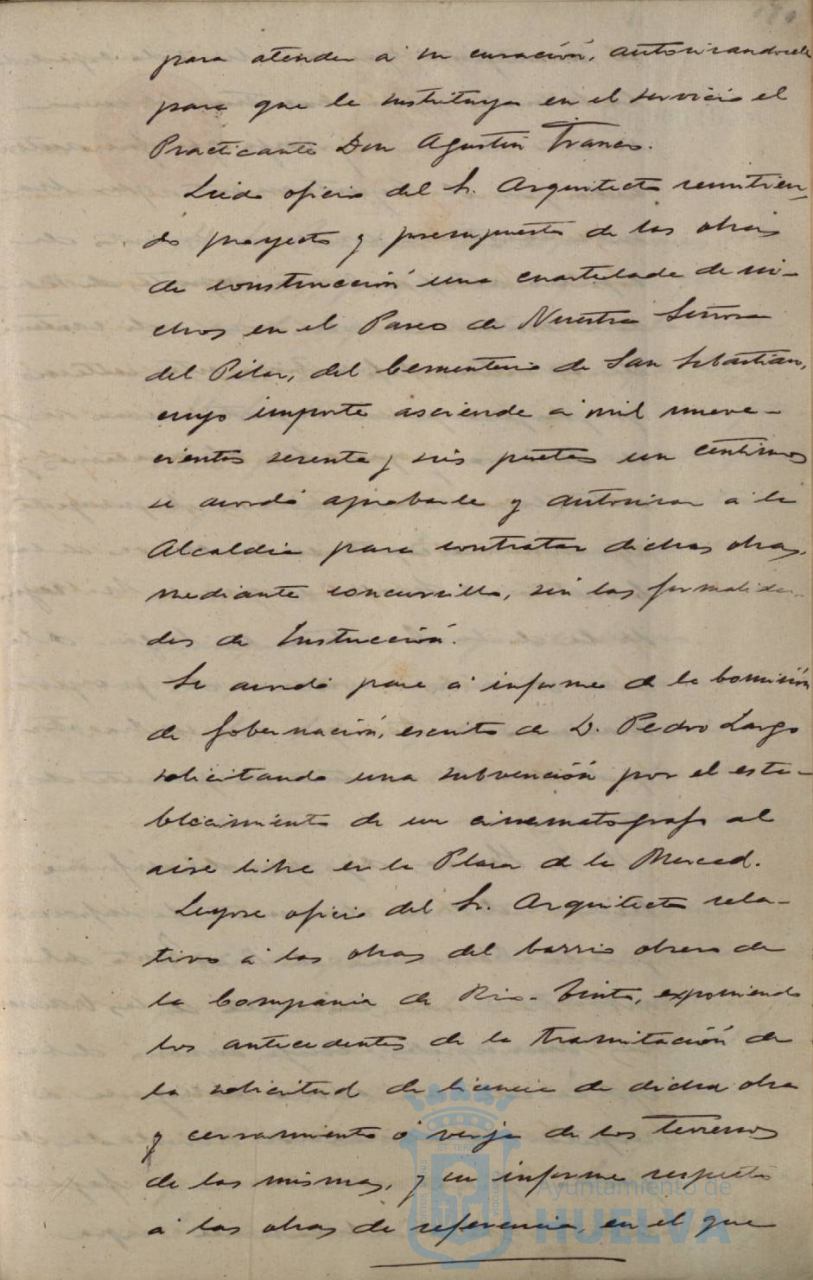 para atender á su curación, autorizandosele
para que le sustituya en el servicio el
Practicante Don Agustin Franco.
Leido oficio del Sr. Arquitecto remitien-
do proyecto y presupuesto de las obras
de construcción una cuartelada de ni-
chos en el Paseo de Nuestra Señora
del Pilar, del Cementerio de San Sebastian,
cuyo importe asciende á mil nueve-
cientos sesenta y seis pesetas un centimos
se acordó aprobarle y autorizar a la
Alcaldia para contratar dichas obras,
mediante concursillo, sin las formalida-
des de Instrucción.
Se acordó pase á informe de la Comisión
de Gobernación, escrito de D. Pedro Largo
solicitando una subvención por el esta-
blecimiento de un cinematografo al
aire libre en la Plaza de la Merced.
Leyose oficio del Sr. Arquitecto rela-
tivo á las obras del barrio obrero de
la Compania de Rio-Tinto, exponiendo
los antecedentes de la tramitación de
la solicitud de licencia de dicha obra
y cerramiento ó verja de los terrenos
de las mismas, y su informe respecto
á las obras de referencia, en el que
Ayuntamiento de
HUELVA